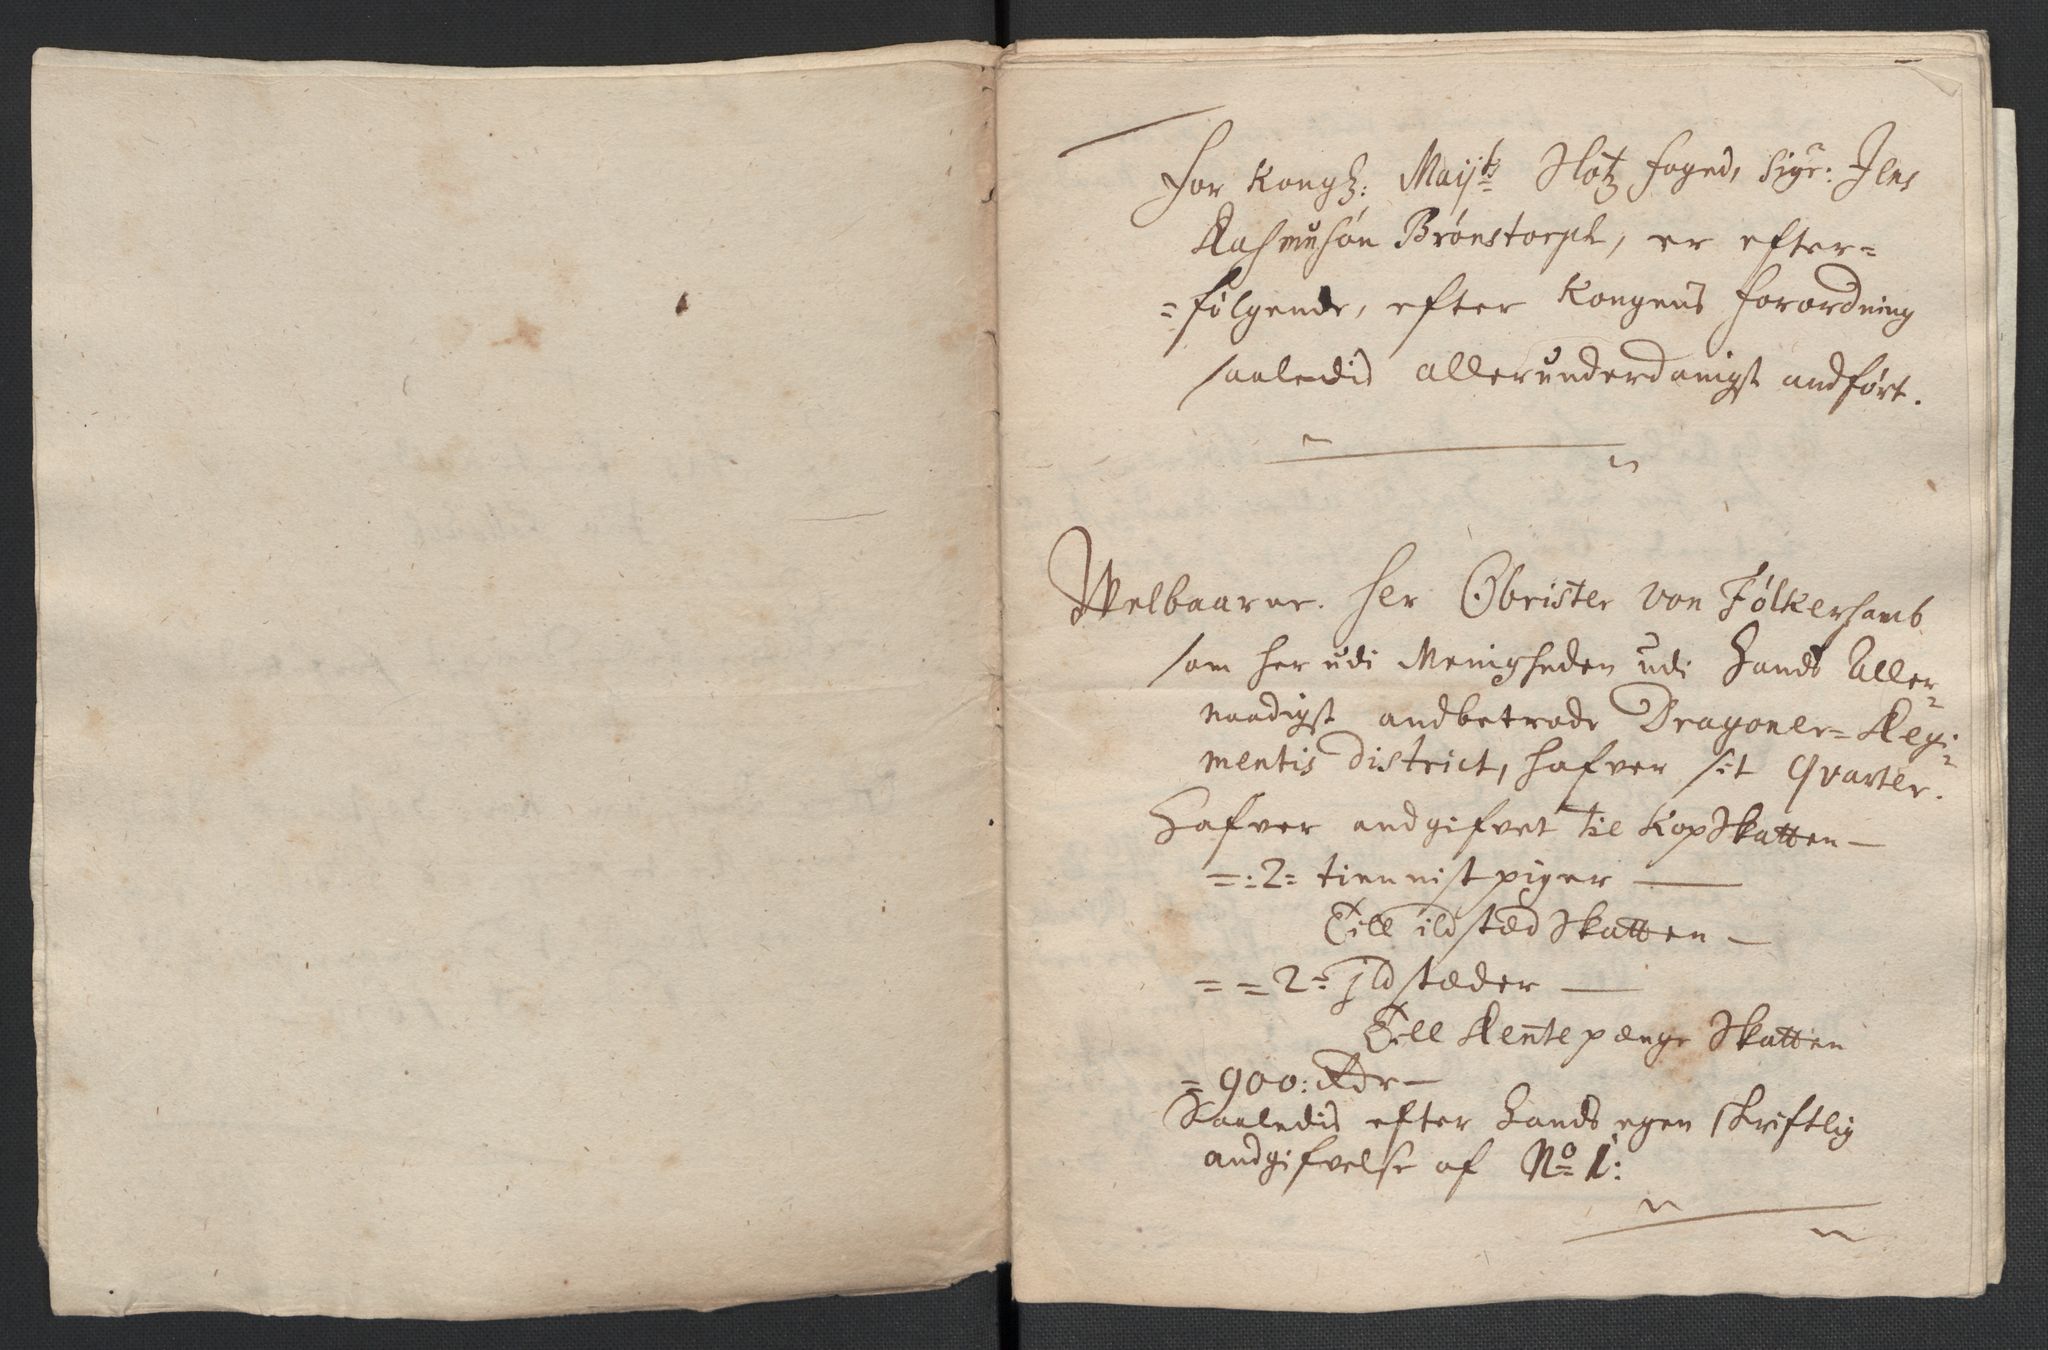 For Kongl: Maij:ts Slotz foged, Sigr: Jens
Rasmusøn Brønstorph, er efter=
=følgende, efter Kongens forordning
saaledis allerunderdanigst andført.
Welbaarne. Her Obrister von Følkersamb
som her udi Menigheden udi Hands Aller=
naadigst andbetrode Dragoner=Regi=
mentis district, hafver sit Qvarter.
Hafver andgifvet til KopSkatten —
=:2= tiennistpiger —
Till ildstæd Skatten —
= = 2= Jldstæder —
Till Rentepænge Skatten
= 900: Rdr —
Saaledis efter Hands egen skriftlig
andgifvelse af No 1: